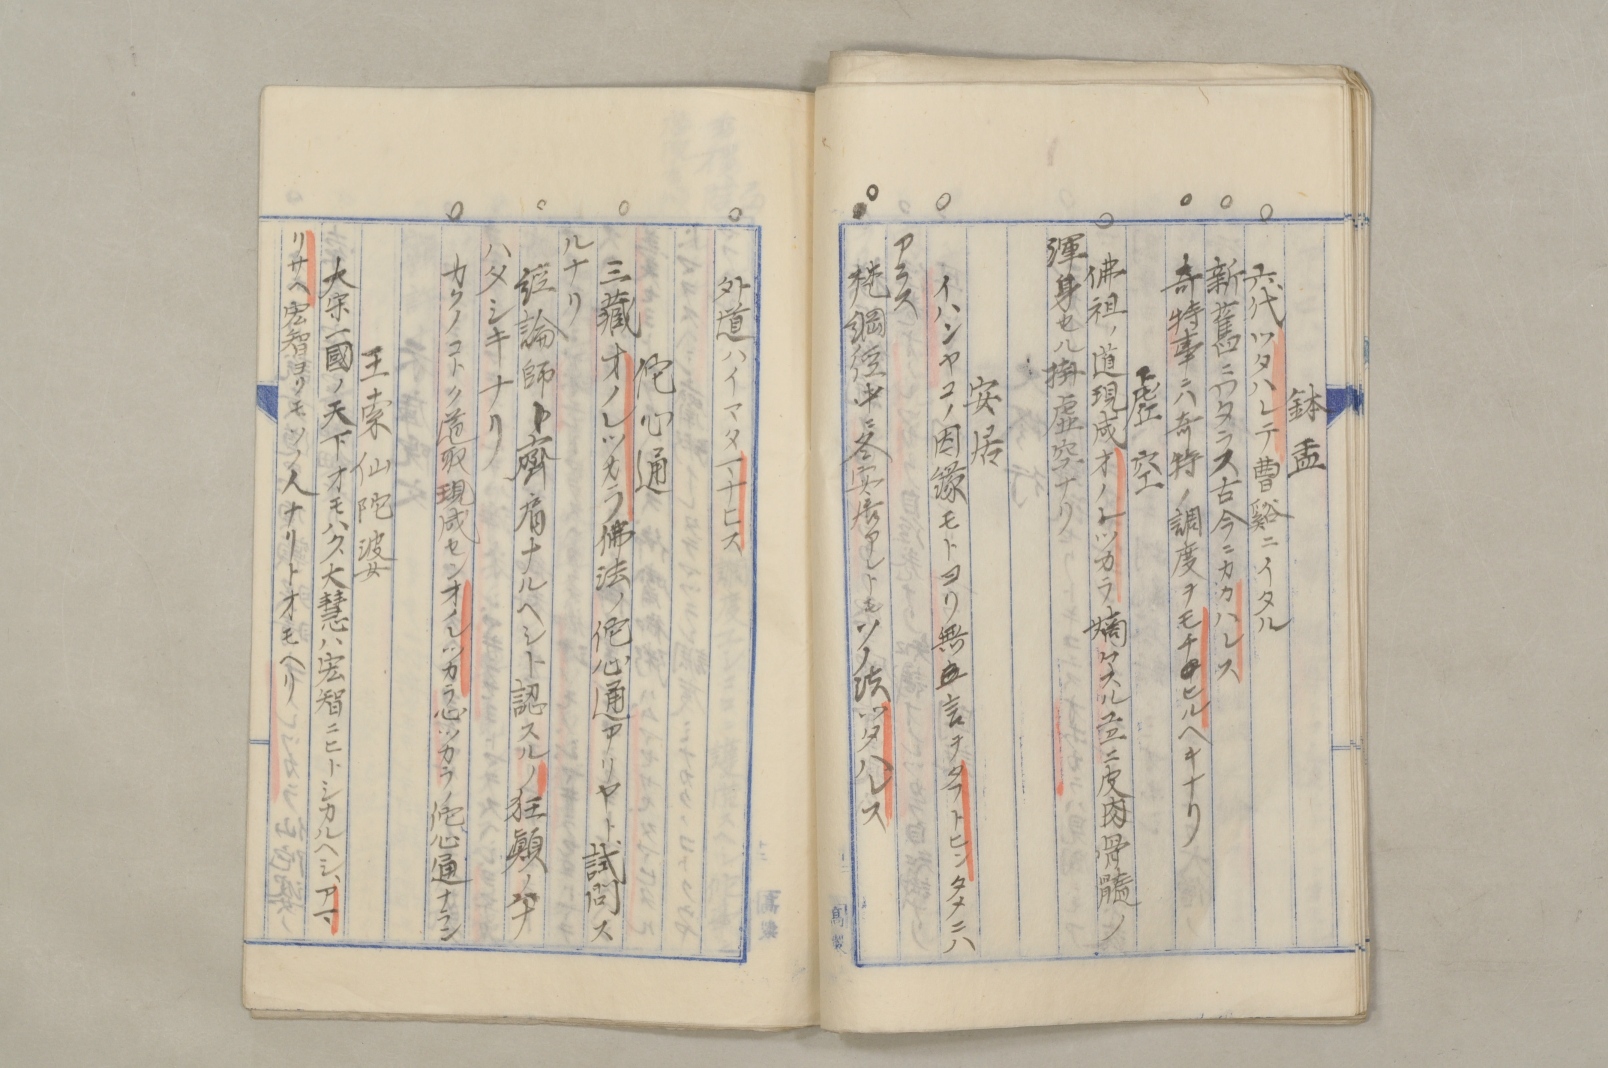 鉢盂
六代ツタハレテ曹谿ニイタル
新舊ニワタラス古今ニカカハレス
奇特事ニハ奇特ノ調度ヲモチヒルヘキナリ
虚空
佛祖ノ道現成オノレツカラ嫡々スルユヱニ皮肉骨髓ノ
渾身セル掛虚空ナリ
安居
イハンヤコノ因縁モトヨリ無言ヲタフトヒンタメニハ
アラス
梵網経中ニ冬安居アレトモソノ法ツタハレス
外道ハイマタマナヒス
佗心通
三藏オノレツカラ佛法ノ佗心通アリヤト試問ス
ルナリ
経論師ト齊肩ナルヘシト認スルノ狂顚ノハナ
ハタシキナリ
カクノコトク道取現成センオノレツカラ心ツカラノ佗心通ナラン
王索仙陀婆
大宋一國ノ天下オモハク大慧ハ宏智ニヒトシカルヘシ、アマ
リサヘ宏智ヨリモソノ人ナリトオモヘリ